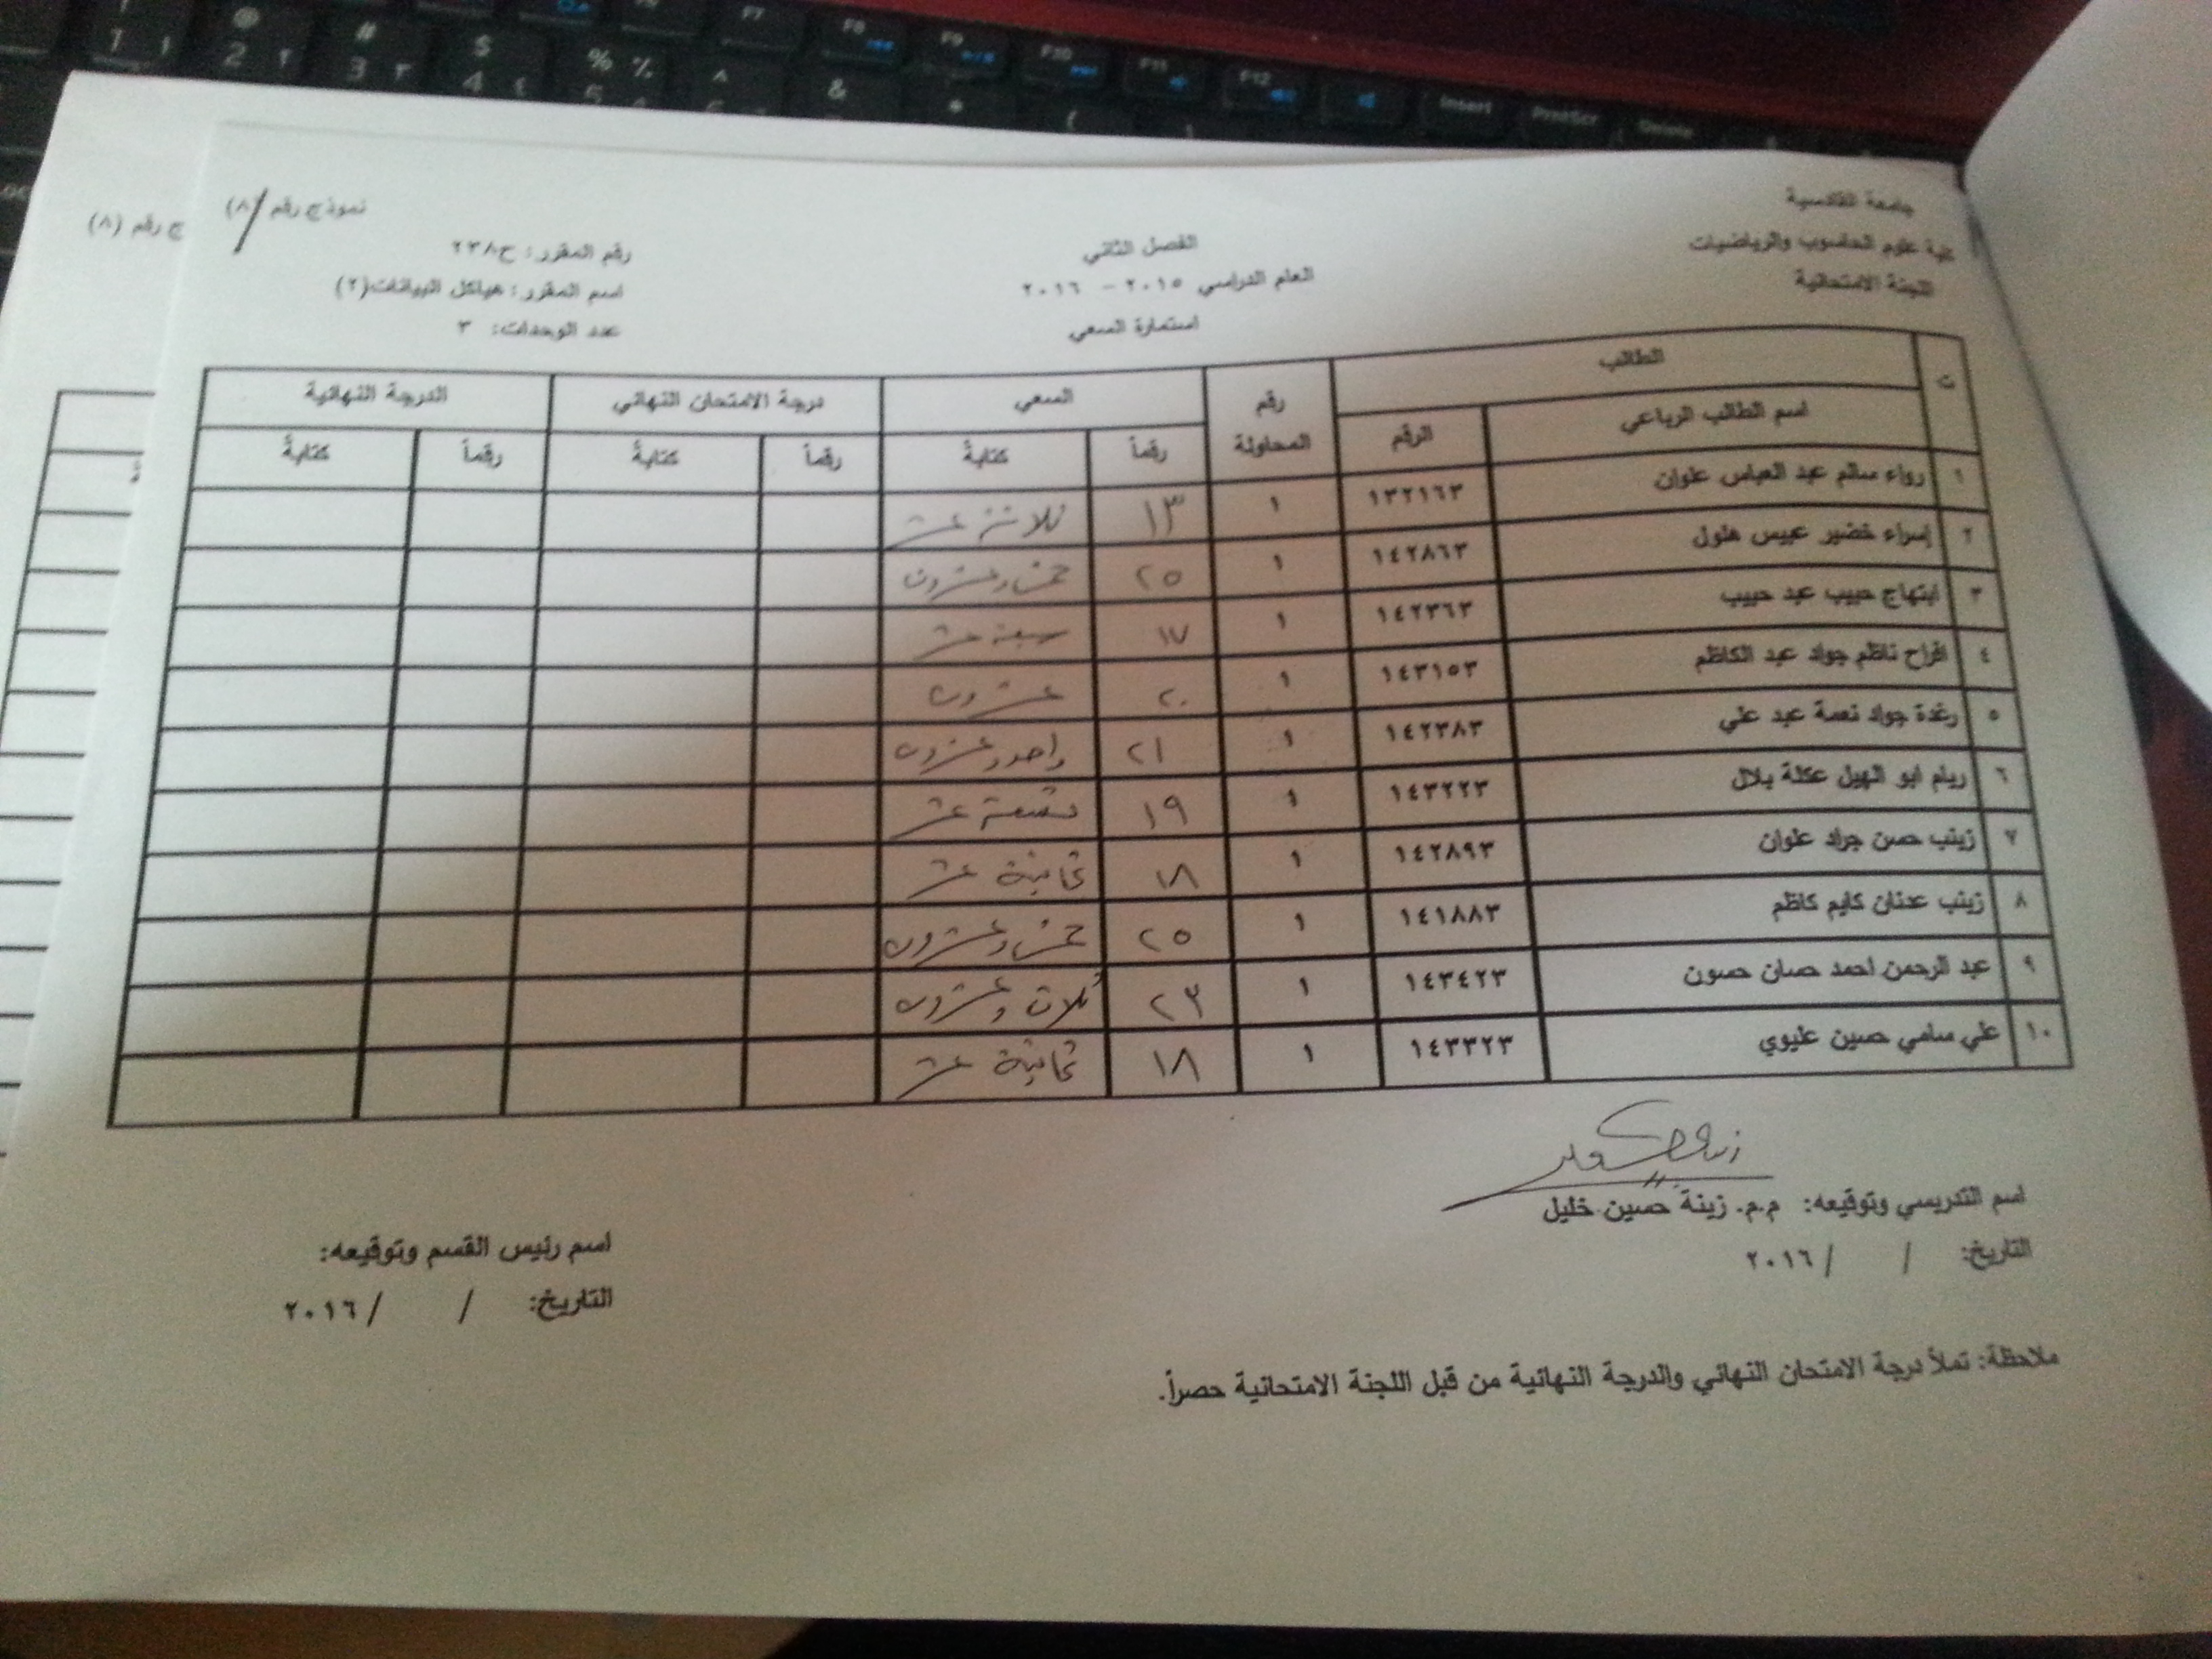 جامعة القادسية
كلية علوم الحاسوب والرياضيات
اللجنة الامتحانية
الفصل الثاني
العام الدراسي ٢٠١٥ - ٢٠١٦
استمارة السعي
نموذج رقم (٨)
رقم المقرر: ح٢٣٨
اسم المقرر: هياكل البيانات(٢)
عدد الوحدات: ٣
ج رقم (٨)
ت الطالب رقم المحاولة السعي درجة الامتحان النهائي الدرجة النهائية
اسم الطالب الرباعي الرقم رقماً كتابةً رقماً كتابةً رقماً كتابةً
١ رواء سالم عبد العباس علوان ١٣٢١٦٣ ١ ١٣ ثلاثة عشر
٢ إسراء خضير عبيس هلول ١٤٢٨٦٣ ١ ٢٥ خمس وعشرون
٣ ابتهاج حبيب عبد حبيب ١٤٢٣٦٣ ١ ١٧ سبعة عشر
٤ افراح ناظم جواد عبد الكاظم ١٤٣١٥٣ ١ ٢٠ عشرون
٥ رغدة جواد نعمة عبد علي ١٤٢٣٨٣ ١ ٢١ واحد وعشرون
٦ ريام ابو الهيل عكلة بلال ١٤٣٢٢٣ ١ ١٩ تسعة عشر
٧ زينب حسن جراد علوان ١٤٢٨٩٣ ١ ١٨ ثمانية عشر
٨ زينب عدنان كايم كاظم ١٤١٨٨٣ ١ ٢٥ خمس وعشرون
٩ عبد الرحمن احمد حسان حسون ١٤٣٤٢٣ ١ ٢٣ ثلاث وعشرون
١٠ علي سامي حسين عليوي ١٤٣٣٢٣ ١ ١٨ ثمانية عشر
اسم التدريسي وتوقيعه: م.م. زينة حسين خليل
التاريخ: / / ٢٠١٦
اسم رئيس القسم وتوقيعه:
التاريخ: / / ٢٠١٦
ملاحظة: تملأ درجة الامتحان النهائي والدرجة النهائية من قبل اللجنة الامتحانية حصراً.